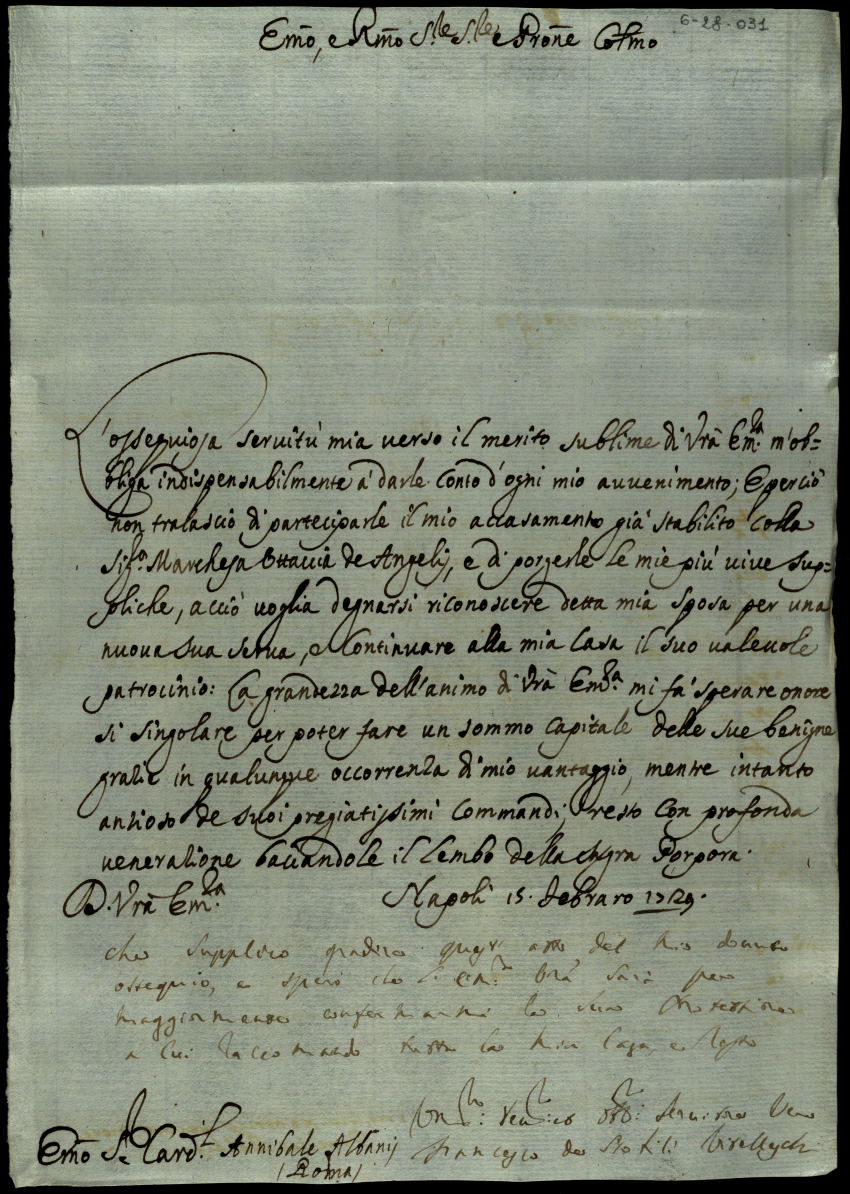 6-28-031
Emo, e Rmo S.re S.re e Prone Colmo
L'ossequiosa seruitù mia uerso il merito sublime di Vrã Em.za m'ob=
bliga indispensabilmente a' darle conto d'ogni mio auuenimento; E perciò
non tralascio di parteciparle il mio accasamento già stabilito colla
Sig.ra Marchesa Ottauia de Angelij, e di porgerle le mie più uiue sup=
pliche, acciò uoglia degnarsi riconoscere detta mia sposa per una
nuoua sua serua, e continuare alla mia Casa il suo ualeuole
patrocinio: La grandezza dell'animo di Vrã Em.za mi fà sperare onore
si singolare per poter fare un sommo capitale delle sue benigne
gratie in qualunque occorrenza di mio uantaggio, mentre intanto
antioso de suoi pregiatissimi commandi, resto con profonda
ueneratione baciandole il lembo della sagra Porpora.
D. Vrã Em.za Napoli 15. Febraro 1729.
che supplico gradire questo atto del mio douuto
ossequio, e spero che l' Em.za Vrã sarà per
maggiormente confermarmi la sua Protettione
a cui raccomando tutta la mia Casa, e resto
Vm.mo Deu.mo Obb.mo Seruitore Vero
Francesco de
Emo S.re Card.l Annibale Albanij
(Roma)